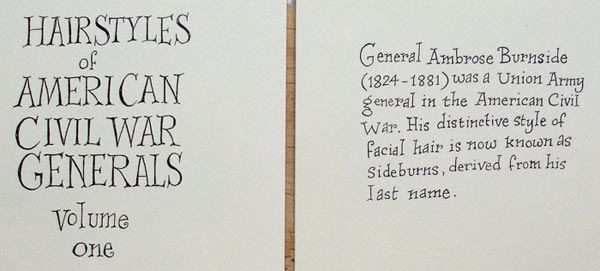 HAIRSTYLES
of
AMERICAN
CIVIL WAR
GENERALS
Volume
one
General Ambrose Burnside
(1824-1881) was a Union Army
general in the American Civil
War. His distinctive style of
facial hair is now known as
sideburns, derived from his
last name.